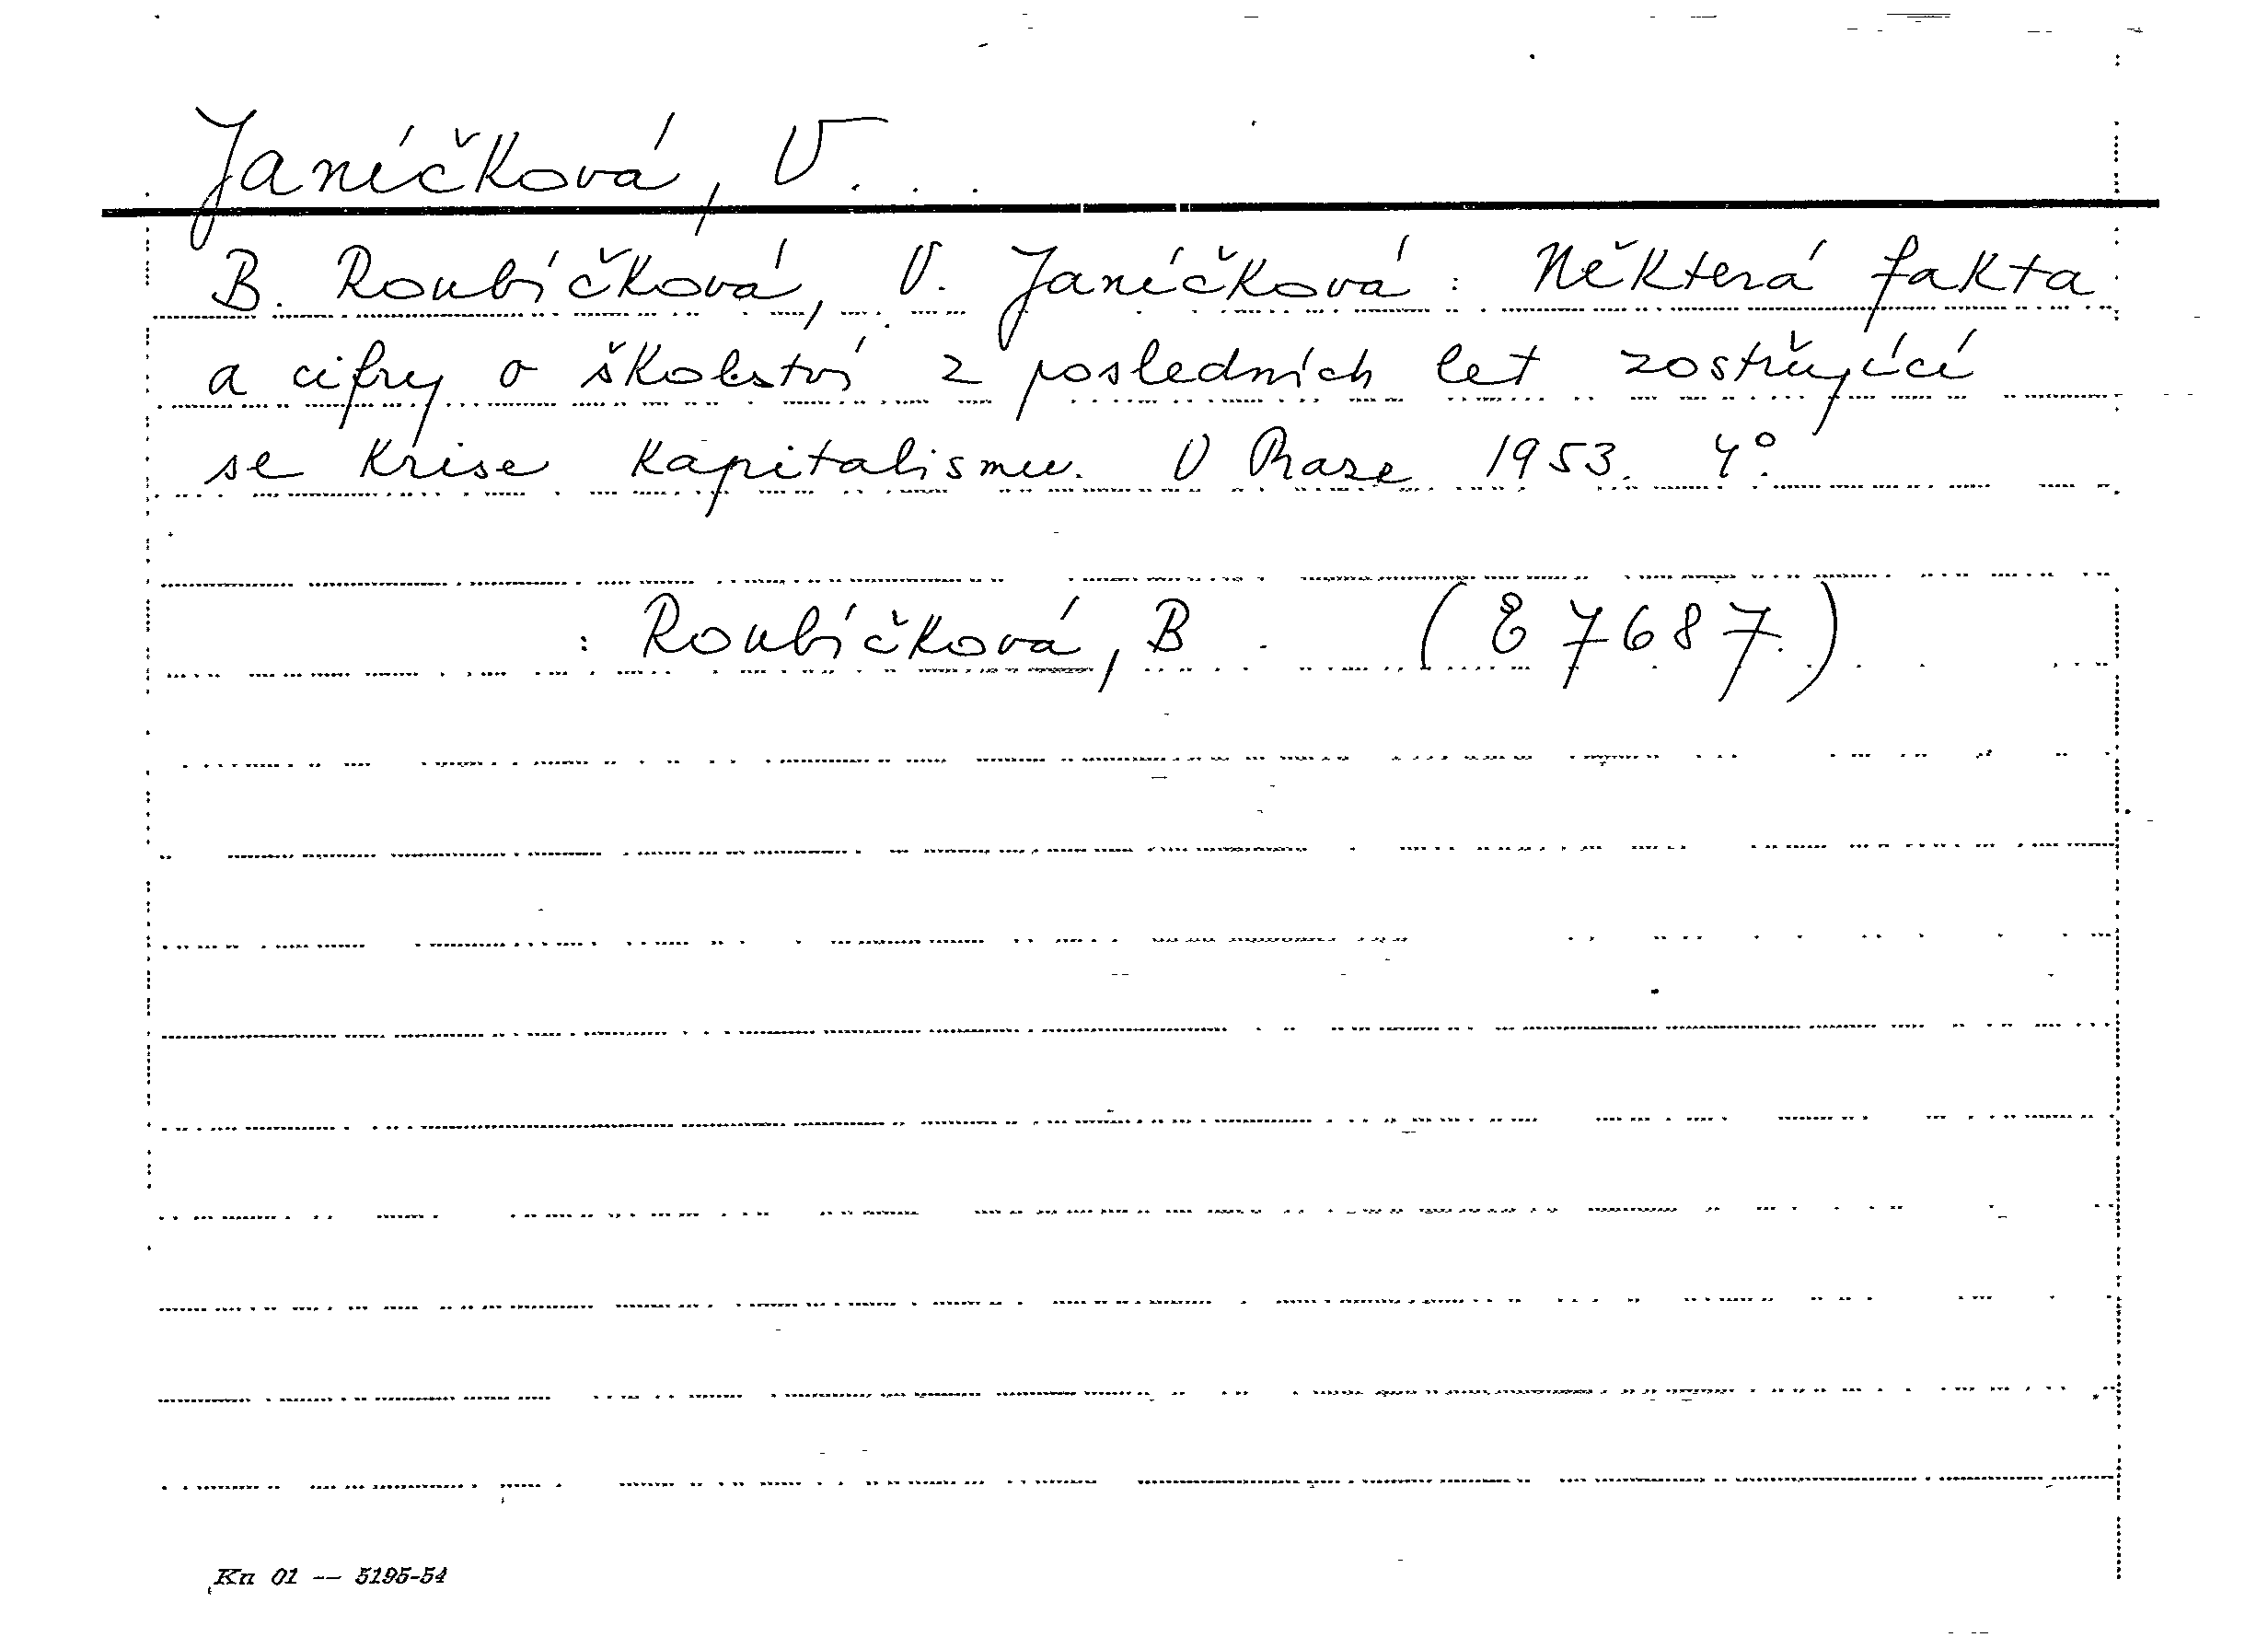 Janíčková, V.
B. Roubíčková, V. Janíčková: Některá fakta
a cifry o školství z posledních let zostřující
se krise kapitalismu. V Praze 1953. 4°.
: Roubíčková, B. (E 7687.)
Kn 01 -- 5195-54